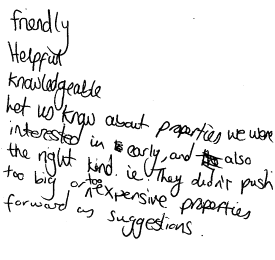 friendly
Helpful
knowledgeable
Let us know about properties we were
interested in early, and also
the right kind. ie. They didn't push
too big or too expensive properties
forward as suggestions.